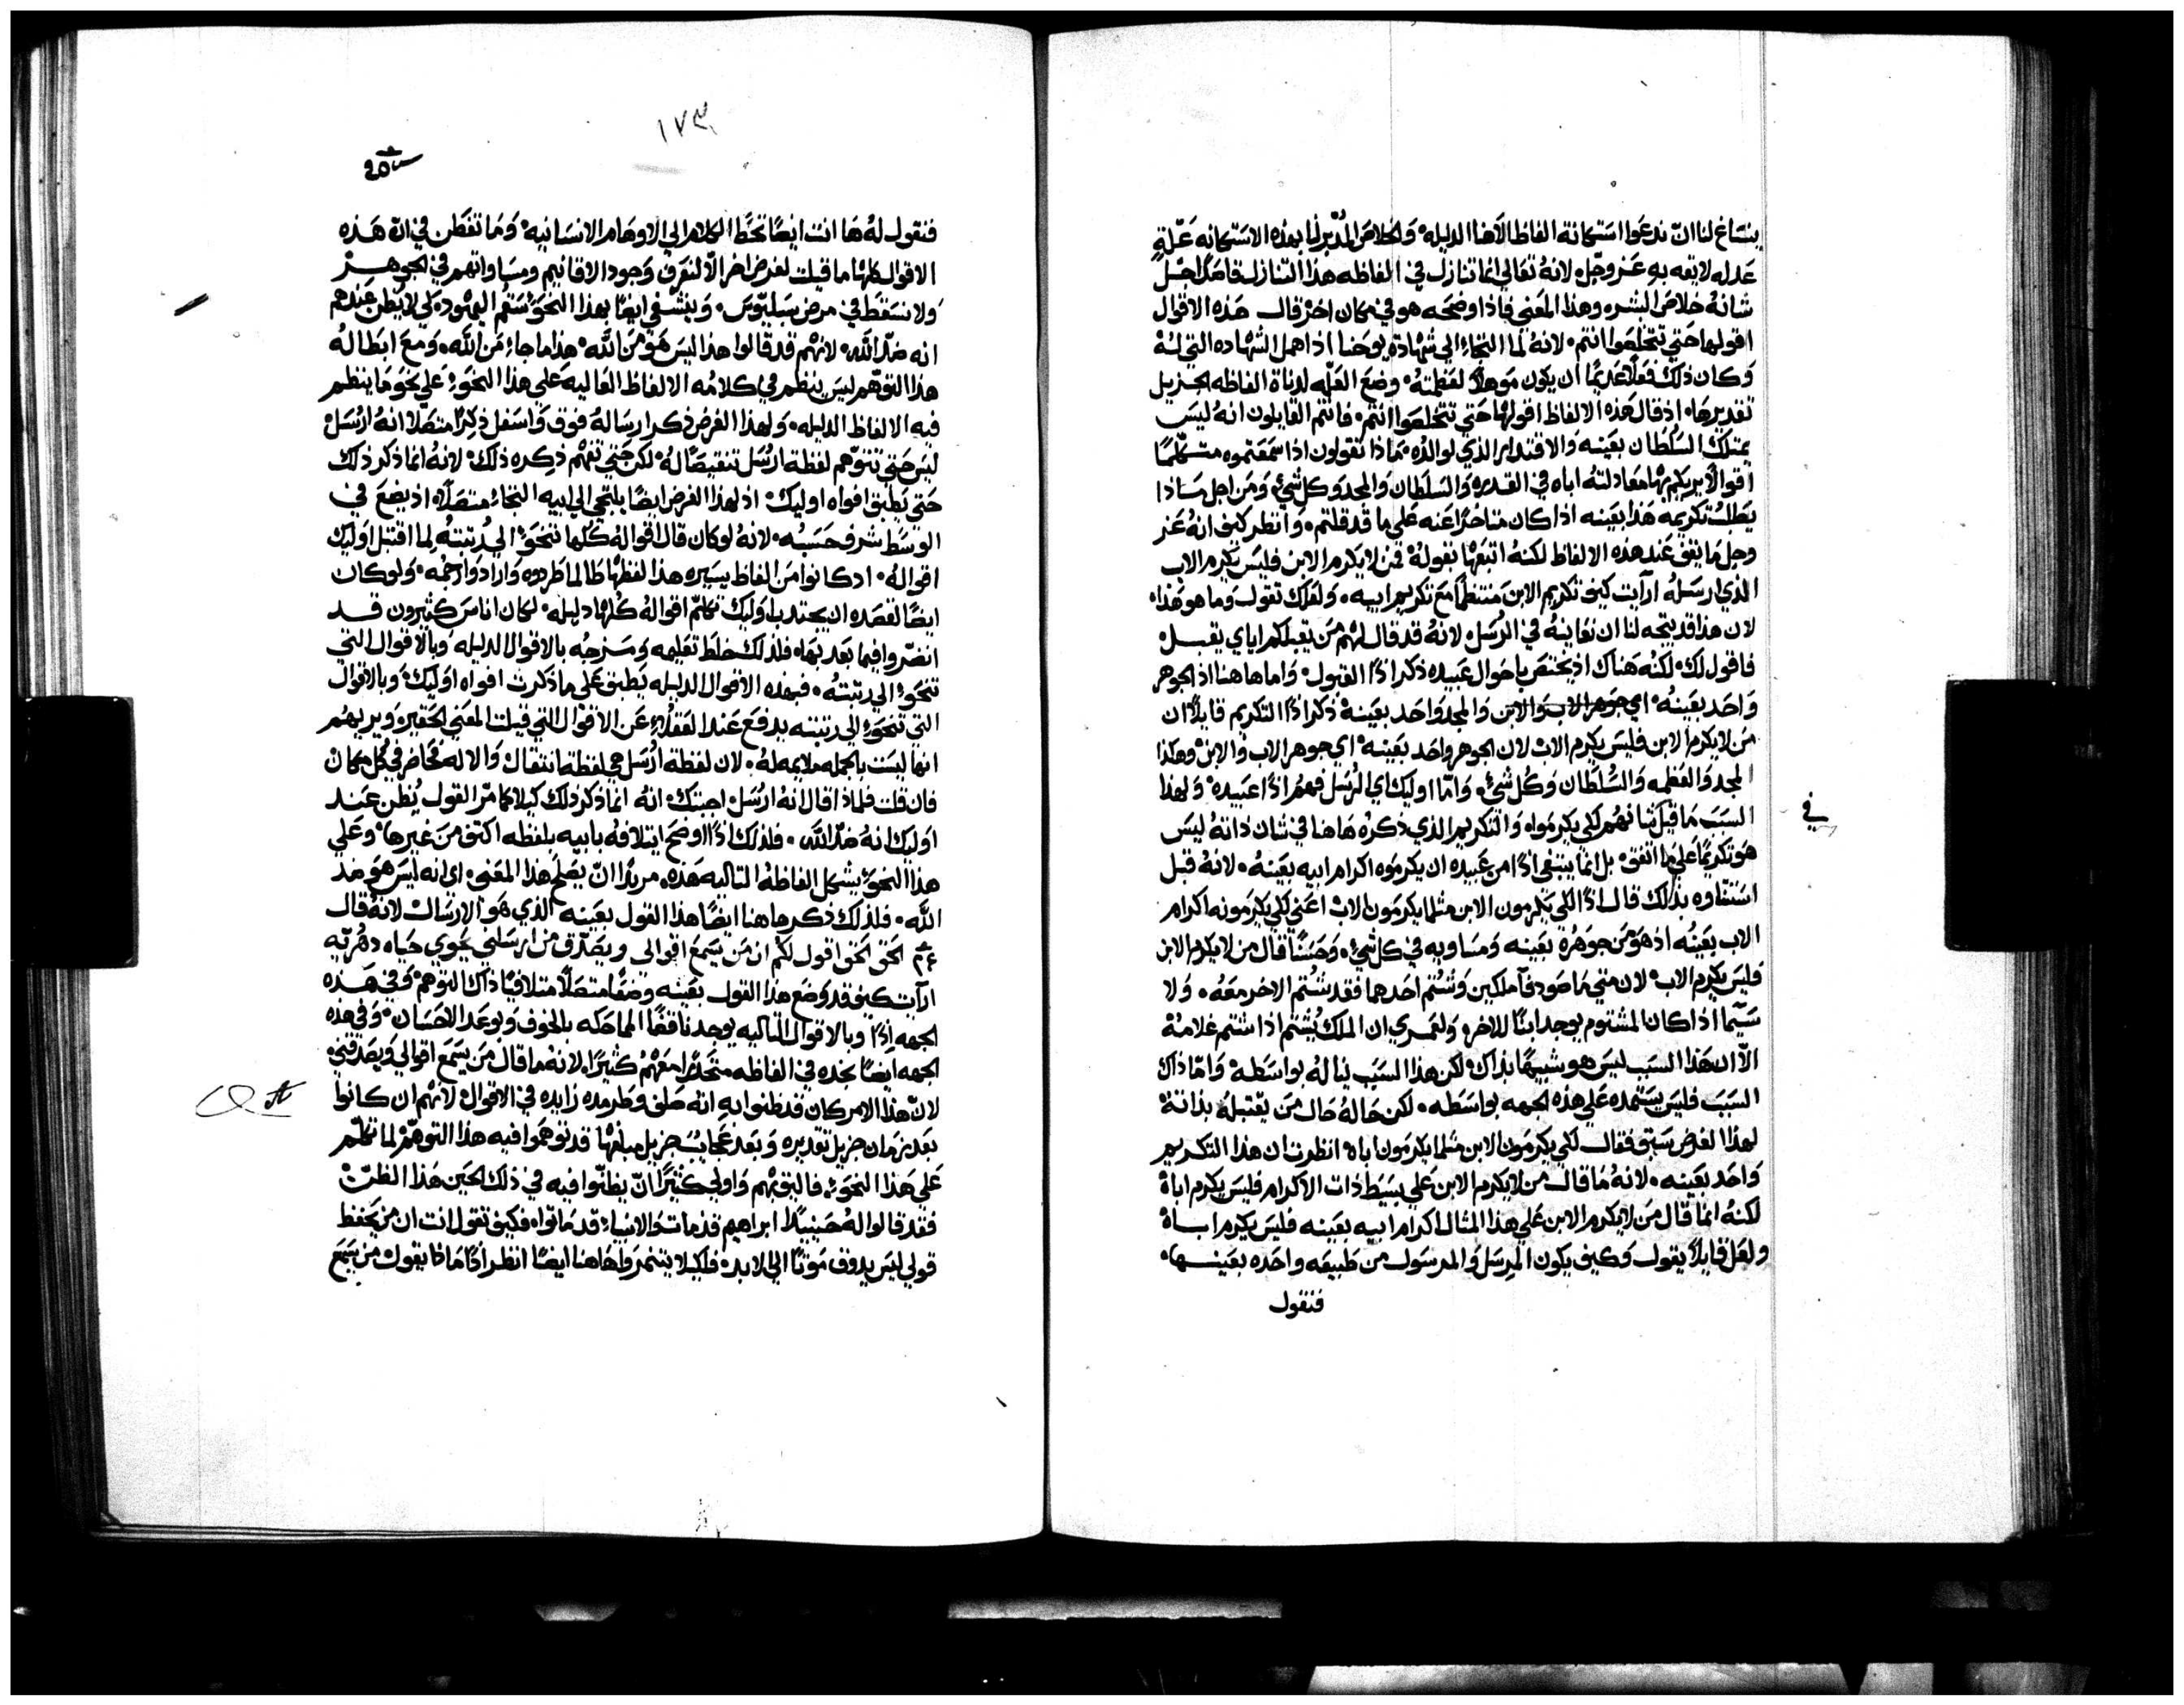 ينساغ لنا ان ندعوا استكانة الفاظ الاهنا الدليله والخلاص المدبر لنا بهذه الاستكانه علة
عدله لايقه به عز وجل لانه تعالى انما تنازل في الفاظه هذا التنازل قاصدا جل
شانه خلاص البشر وهذا المعنى فاذا اوضحه هو في مكان اخر قال هذه الاقوال
اقولها حتى تتخلصوا انتم لانه لما التجاء الى شهادة يوحنا اذ اهمل الشهاده التي له
وكان ذلك فعلا عديما ان يكون موهلا لعظمته وضع العله لدناة الفاظه الجزيل
تقديرها اذ قال هذه الالفاظ اقولها حتى تتخلصوا انتم فانتم القايلون انه ليس
يمتلك السلطان بعينه والاقتدار الذي لوالده ماذا تقولون اذا سمعتموه متكلما
اقوالا يريكم بها معادلته اباه في القدره والسلطان والمجد وكل شيء ومن اجل ماذا
يطلب تكريمه هذا بعينه اذا كان متاخرا عنه على ما قد قلتم وانظر كيف انه عز
وجل ما يقف عند هذه الالفاظ لكنه اتبعها بقوله فمن لا يكرم الابن فليس يكرم الاب
الذي ارسله ارايت كيف تكريم الابن منتظما مع تكريم ابيه ولعلك تقول وما هو هذا
لان هذا قد يتجه لنا ان نعاينه في الرسل لانه قد قال لهم من يقبلكم اياي يقبل
فاقول لك لكنه هناك اذ يختص باحوال عبيده ذكر اذا القبول واما هاهنا اذ الجوهر
واحد بعينه اي جوهر الاب والابن والمجد واحد بعينه ذكر اذا التكريم قايلا ان
من لا يكرم الابن فليس يكرم الاب لان الجوهر واحد بعينه اي جوهر الاب والابن وهكذا
المجد والعظمه والسلطان وكل شيء واما اوليك اي الرسل فهم اذا عبيده ولهذا
السبب ما قيل في شانهم لكي يكرموه والتكريم الذي ذكره هاهنا في شان ذاته ليس
هو تكريما على ما اتفق بل انما ينبغي اذا من عبيده ان يكرموه اكرام ابيه بعينه لانه قبل
استثناوه بذلك قال اذا لكي يكرمون الابن مثلما يكرمون الاب اعني لكي يكرمونه اكرام
الاب بعينه اذ هو من جوهره بعينه ومساويه في كل شيء وحسنا قال من لا يكرم الابن
فليس يكرم الاب لان متى ما صودفا ملكين وشتم احدهما فقد شتم الاخر معه ولا
سيما اذا كان المشتوم يوجد ابنا للاخر ولعمري ان الملك يشتم اذا شتم غلامه
الا ان هذا السبب ليس هو شبيها بذاك لكن هذا السبب يناله بواسطه واما ذاك
السبب فليس يستمده على هذه الجهه بواسطه لكن حاله حال من يقتبله بذاته
لهذا الغرض سبق فقال لكي يكرمون الابن مثلما يكرمون اباه انظرت ان هذا التكريم
واحد بعينه لانه ما قال من لا يكرم الابن على بسيط ذات الاكرام فليس يكرم اباه
لكنه انما قال من لا يكرم الابن على هذا المثال اكرام ابيه بعينه فليس يكرم اباه
ولعل قايلا يقول وكيف يكون المرسل والمرسول من طبيعه واحده بعينها
فنقول
في
١٧٣
فنقول له ها انت ايضا تحط الكلام الى الاوهام الانسانيه وما تفطن في ان هذه
الاقوال كلها ما قيلت لغرض اخر الا لنعرف وجود الاقانيم ومساواتهم في الجوهر
ولا نسقط في مرض سبليوس وينشفي ايضا بهذا النحو سقم اليهود لكي لا يظن عندهم
انه ضد الله لانهم قد قالوا هذا ليس هو من الله هذا ما جاء من الله ومع ابطاله
هذا التوهم ليس ينظم في كلامه الالفاظ العاليه على هذا النحو على نحو ما ينظم
فيه الالفاظ الدليله ولهذا الغرض ذكر ارساله فوق واسفل ذكرا متصلا انه ارسل
ليس حتى تتوهم لفظة ارسل تنقيصا له لكن حتى تفهم ذكره ذلك لانه انما ذكر ذلك
حتى يطبق افواه اوليك اذ لهذا الغرض ايضا يلتجي الى ابيه التجاء متصلا اذ يضع في
الوسط شرف حسبه لانه لو كان قال اقواله كلها تنحو الى رتبته لما اقتبل اوليك
اقواله اذ كانوا من الفاظ يسيره هذا لفظها طالما طردوه وارادوا رجمه ولو كان
ايضا لقصده ان يجتذب اوليك تكلم اقواله كلها دليله لكان اناس كثيرون قد
انضروا فيما بعد بها فلذلك خلط تعليمه ومزجه بالاقوال الدليله وبالاقوال التي
تنحو الى رتبته فبهذه الاقوال الدليله يطبق على ما ذكرت افواه اوليك وبالاقوال
التي تنحو الى رتبته يدفع عند العقلاء عن الاقوال التي قيلت المعنى الحقير ويريهم
انها ليست بالجمله ملايمه له لان لفظة ارسل هي لفظة انتقال والاله فحاضر في كل مكان
فان قلت فلماذا قال انه ارسل اجبتك انه انما ذكر ذلك كيلا كما مر القول يظن عند
اوليك انه ضد الله فلذلك اذا اوضح ايتلافه بابيه بلفظه اكتف من غيرها وعلى
هذا النحو يشكل الفاظه التاليه هذه مريدا ان يصلح هذا المعنى اي انه ليس هو ضد
الله فلذلك ذكر هاهنا ايضا هذا القول بعينه الذي هو الارسال لانه قال
الحق الحق اقول لكم ان من يسمع اقوالى ويصدق من ارسلني يحوي حياه دهريه
ارايت كيف قد وضع هذا القول بعينه وضعا متصلا متلافيا ذاك التوهم وفي هذه
الجهه اذا وبالاقوال التاليه يوجد نافعا الماحكه بالخوف وبوعد الاحسان وفي هذه
الجهه ايضا نجده في الفاظه متحدرا معهم كثيرا لانه ما قال من يسمع اقوالي ويصدقني
لان هذا الامر كان قد ظنوا به انه صلف وطرمده زايده في الاقوال لانهم ان كانوا
بعد زمان جزيل تقديره وبعد عجايب جزيل مبلغها قد توهموا فيه هذا التوهم لما تكلم
على هذا النحو فاليق بهم واولى كثيرا ان يظنوا فيه في ذلك الحين هذا الظن
فقد قالوا له حينيذا ابراهيم قد مات والانبياء قد ماتوا فكيف تقول انت ان من يحفظ
قولي ليس يذوق موتا الى الابد فلكيلا يتنمروا هاهنا ايضا انظر اذا ماذا يقول من يسمع